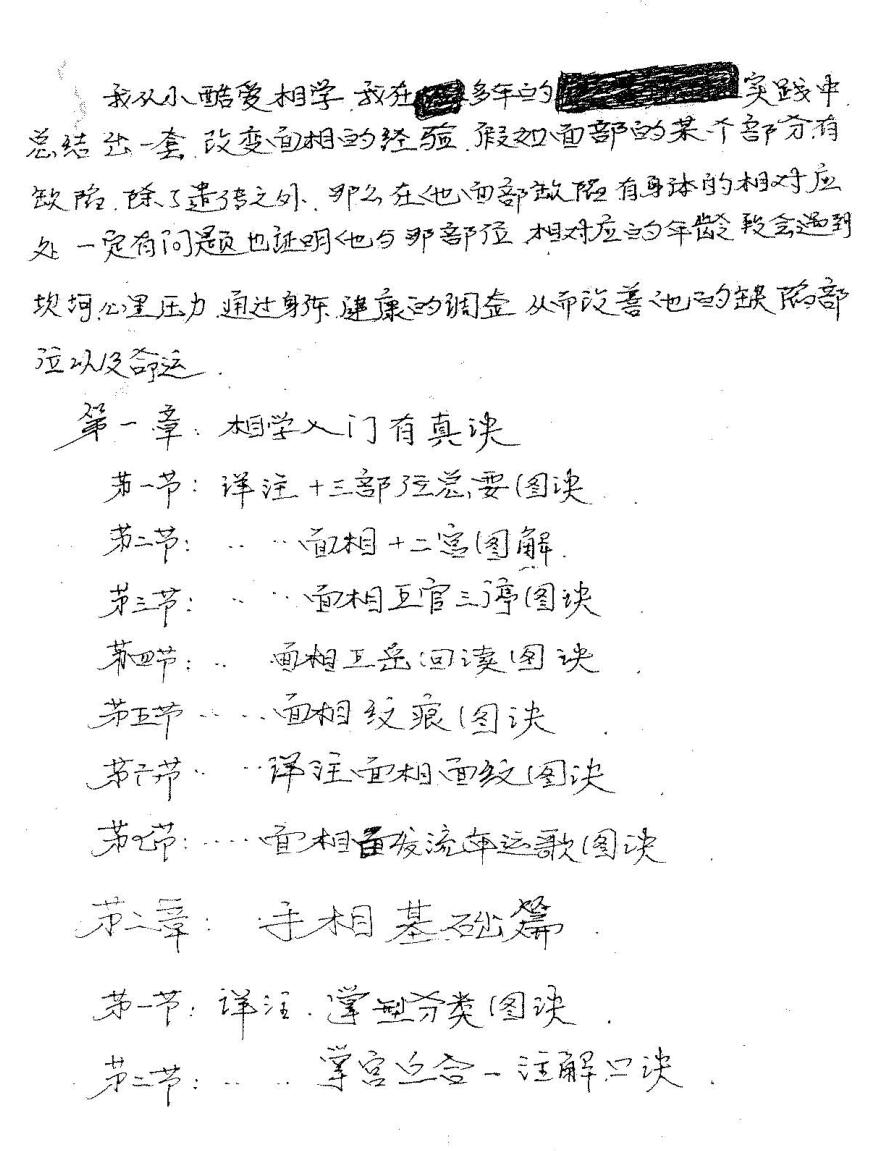 我从小酷爱相学.我在多年的实践中.
总结出一套.改变面相的经验.假如面部的某个部分有
缺陷.除了遗传之外.那么在他面部缺陷有身体的相对应
处一定有问题也证明他与那部位.相对应的年龄段会遇到
坎坷.心里压力.通过身体.健康的调查.从而改善他的缺陷部
位以及命运.
第一章.相学入门有真诀
第一节:详注十三部位总要(图诀.
第二节:‥‥面相十二宫(图解.
第三节:‥‥面相五官三停(图诀
第四节:‥面相五岳四渎(图诀.
第五节‥‥面相纹痕(图诀
第六节‥‥详注面相面纹(图诀
第七节:‥‥面相百岁流年运歌(图诀.
第二章:手相基础篇.
第一节:详注.掌型分类(图诀.
第二节:‥‥掌宫合一注解口诀.